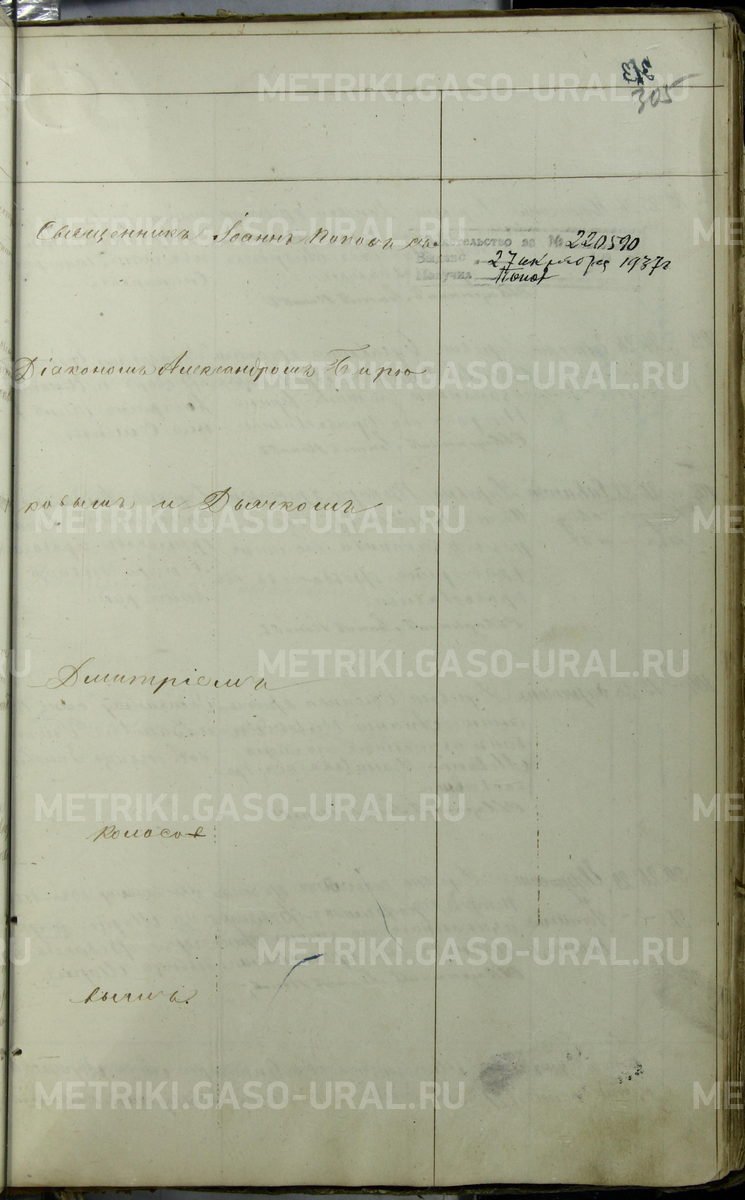 305
METRIKI.GASO-URAL.RU
Священникъ Іоаннъ Поповъ съ
Свидетельство за № 220590
Выдано "27 октября 1937 г
Получил Попов
Діакономъ Александромъ Бирю
METRIKI.GASO-URAL.RU
ковымъ и Дьячкомъ
METRIKI.GASO-URAL.RU
Дмитріемъ
METRIKI.GASO-URAL.RU
Колосо
METRIKI.GASO-URAL.RU
METRIKI.GASO-URAL.RU
вымъ.
METRIKI.GASO-URAL.RU